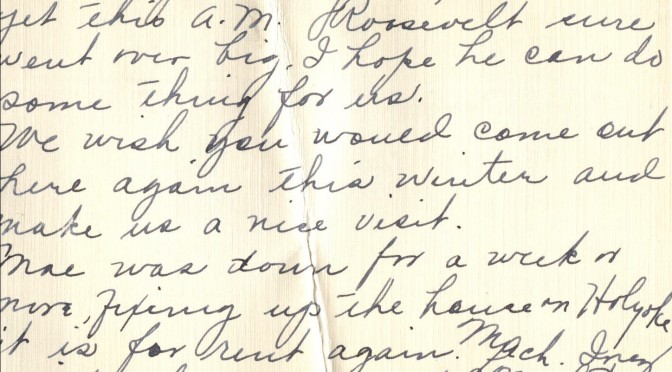 yet this A.M. Roosevelt sure
went over big. I hope he can do
some thing for us.
We wish you would come out
here again this winter and
make us a nice visit.
Mae was down for a week or
more, fixing up the house on Holyoke
it is for rent again. Mach.